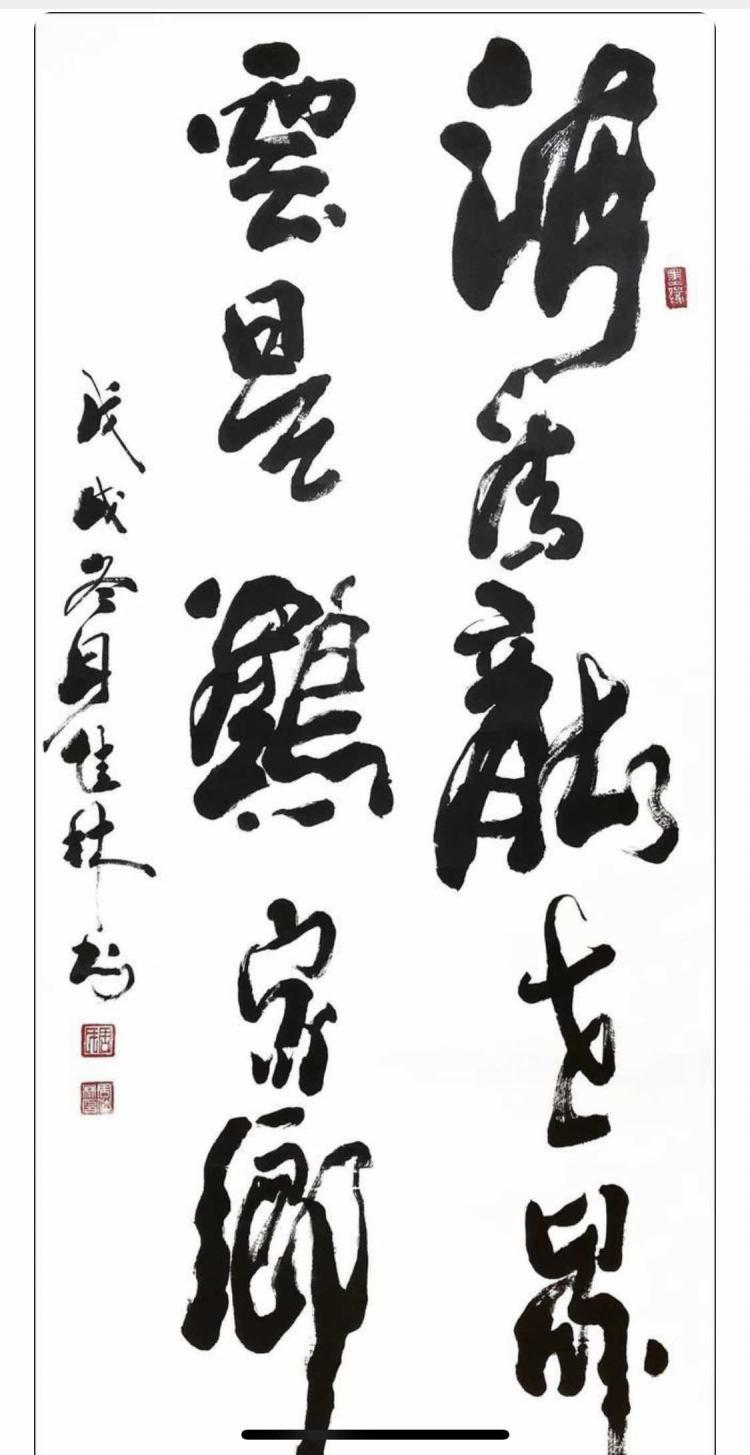 海为龙世界
雲是鶴家鄉
戊戌冬月佳林书